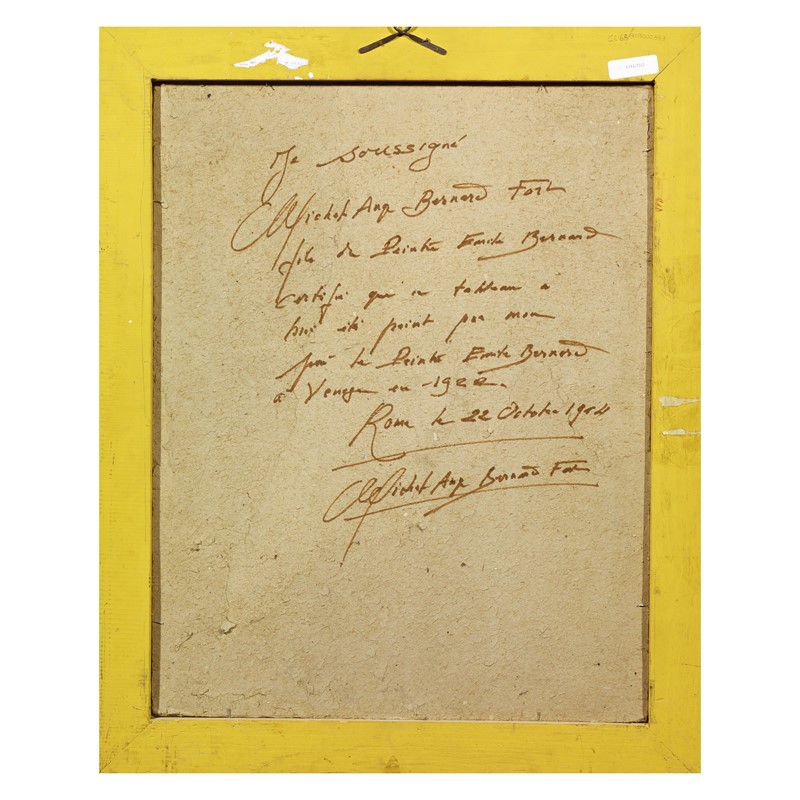 Je soussigné
Michel Ange Bernard Fort
fils du Peintre Emile Bernard
certifie que ce tableau a
bien été peint par mon
père le Peintre Emile Bernard
à Venise en 1922.
Rome le 22 Octobre 1954
Michel Ange Bernard Fort